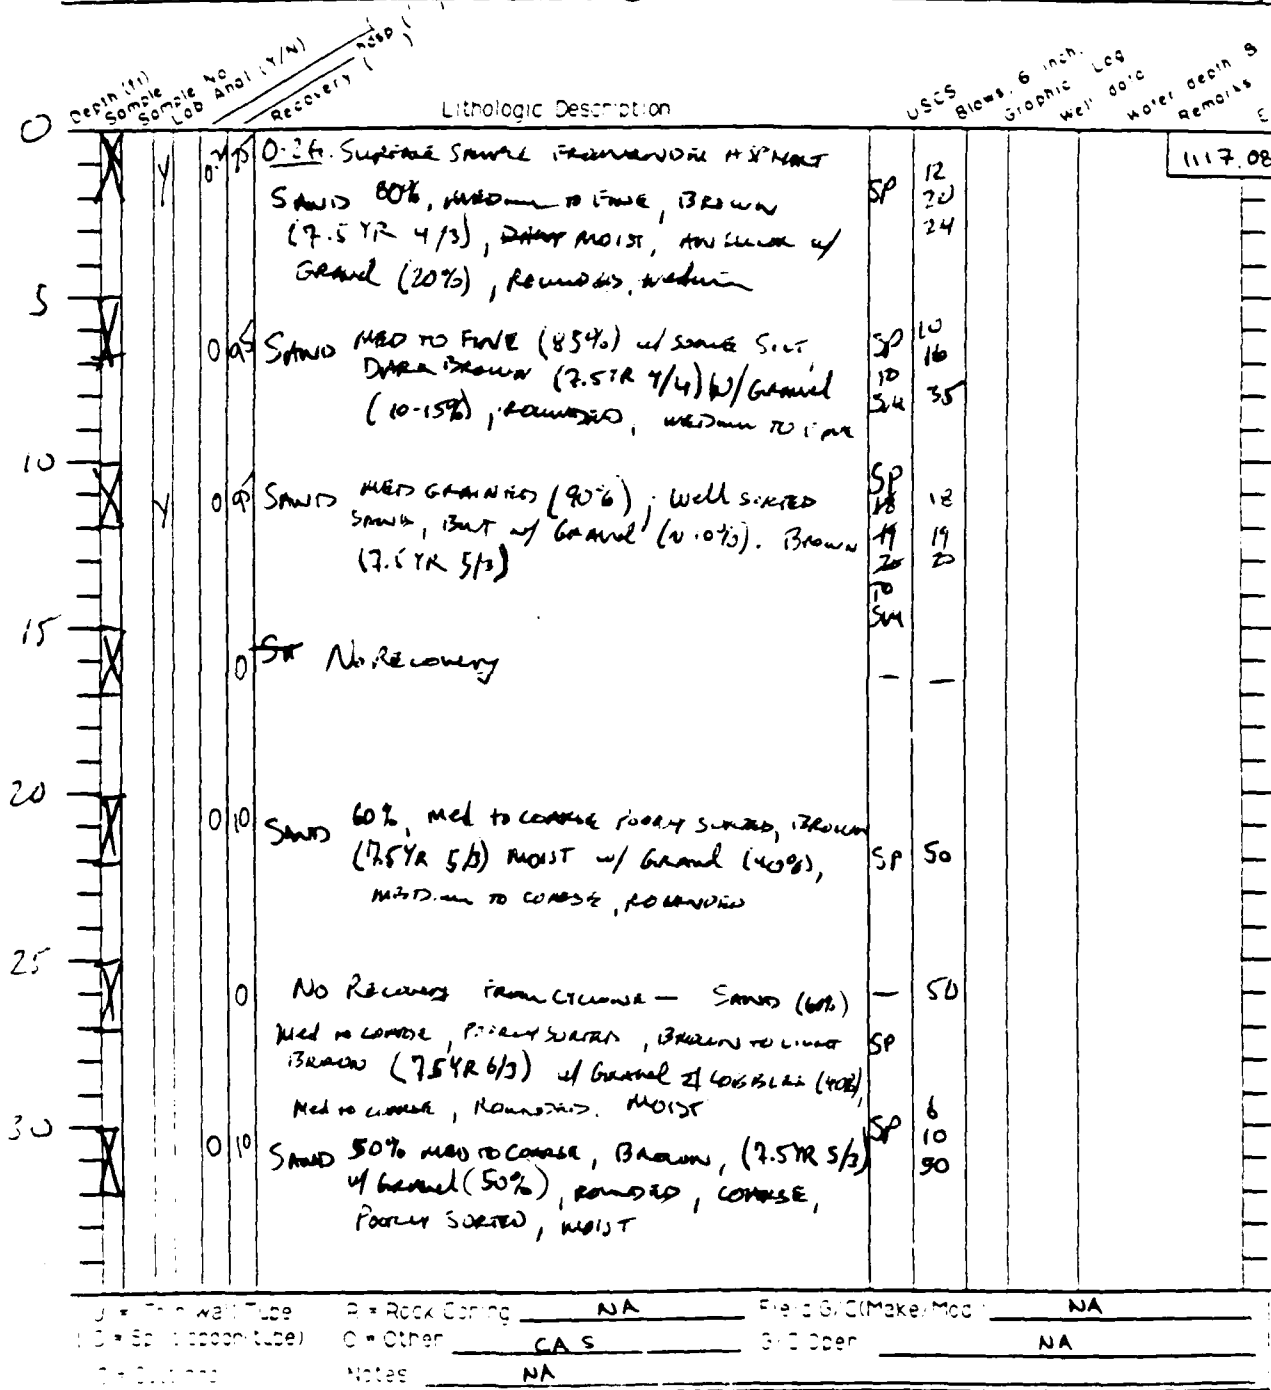 Depth (ft)
Sample
Sample No
Lab Anal (Y/N)
Recovery (
Lithologic Description
USCS
Blows, 6 inch.
Graphic Log
Well data
Water depth &
Remarks
0
Y
0-2ft. Surface Sample
Asphalt
1117.08
SAND 80%, Medium to Fine, Brown
SP
12
20
24
(7.5 YR 4/3), Moist, Angular w/
Gravel (20%), Rounded, Medium
5
0
SAND MED TO FINE (85%) w/ some Silt,
SP
10
16
Dark Brown (7.5YR 4/4) w/ Gravel
to
SM
35
(10-15%), Rounded, Medium to Fine
10
Y
0
SAND MED GRAINED (90%); Well Sorted
SP
18
18
Sand, But w/ Gravel (~10%). Brown
19
19
(7.5 YR 5/3)
20
20
to
SM
15
0
No Recovery
—
—
20
0
10
SAND 60%, Med to Coarse Poorly Sorted, Brown
(7.5YR 5/3) Moist w/ Gravel (40%),
SP
50
Medium to Coarse, Rounded
25
0
No Recovery From Cyclone — Sand (60%)
—
50
Med to Coarse, Poorly Sorted, Brown to Light
SP
Brown (7.5YR 6/3) w/ Gravel & Cobbles (40%),
Med to Coarse, Rounded. Moist
30
0
10
SP
6
10
50
SAND 50% MED to Coarse, Brown, (7.5YR 5/3)
w/ Gravel (50%), Rounded, Coarse,
Poorly Sorted, Moist
Wall Tube
R = Rock Coring NA
Field G/C(Make/Mod NA
O = Other CAS
G/C Oper NA
Notes NA